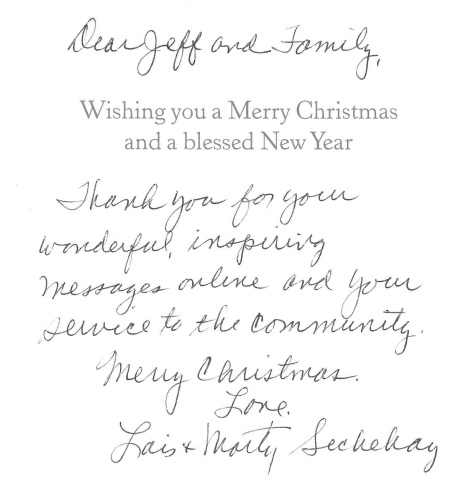 Dear Jeff and Family,
Wishing you a Merry Christmas
and a blessed New Year
Thank you for your
wonderful, inspiring
messages online and your
service to the community.
Merry Christmas.
Love,
Lois & Marty